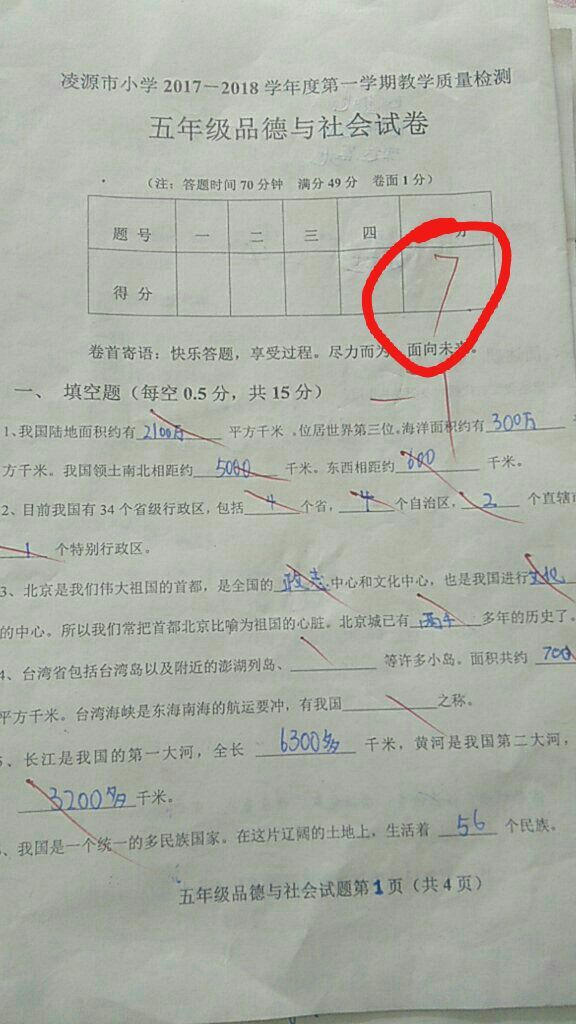 凌源市小学2017－2018学年度第一学期教学质量检测
五年级品德与社会试卷
（注：答题时间70分钟 满分49分 卷面1分）
题号 一 二 三 四 分
得分 7
卷首寄语：快乐答题，享受过程。尽力而为 面向未来。
一、填空题（每空0.5分，共15分）
1、我国陆地面积约有2100万平方千米．位居世界第三位。海洋面积约有300万
方千米。我国领土南北相距约5000千米。东西相距约600千米。
2、目前我国有34个省级行政区，包括4个省，4个自治区，2个直辖市
1个特别行政区。
3、北京是我们伟大祖国的首都，是全国的政志中心和文化中心，也是我国进行文化
的中心。所以我们常把首都北京比喻为祖国的心脏。北京城已有两千多年的历史了。
4、台湾省包括台湾岛以及附近的澎湖列岛、等许多小岛。面积共约700
平方千米。台湾海峡是东海南海的航运要冲，有我国之称。
、长江是我国的第一大河，全长6300多千米，黄河是我国第二大河，
3200多千米。
、我国是一个统一的多民族国家。在这片辽阔的土地上，生活着56个民族。
五年级品德与社会试题第1页（共4页）